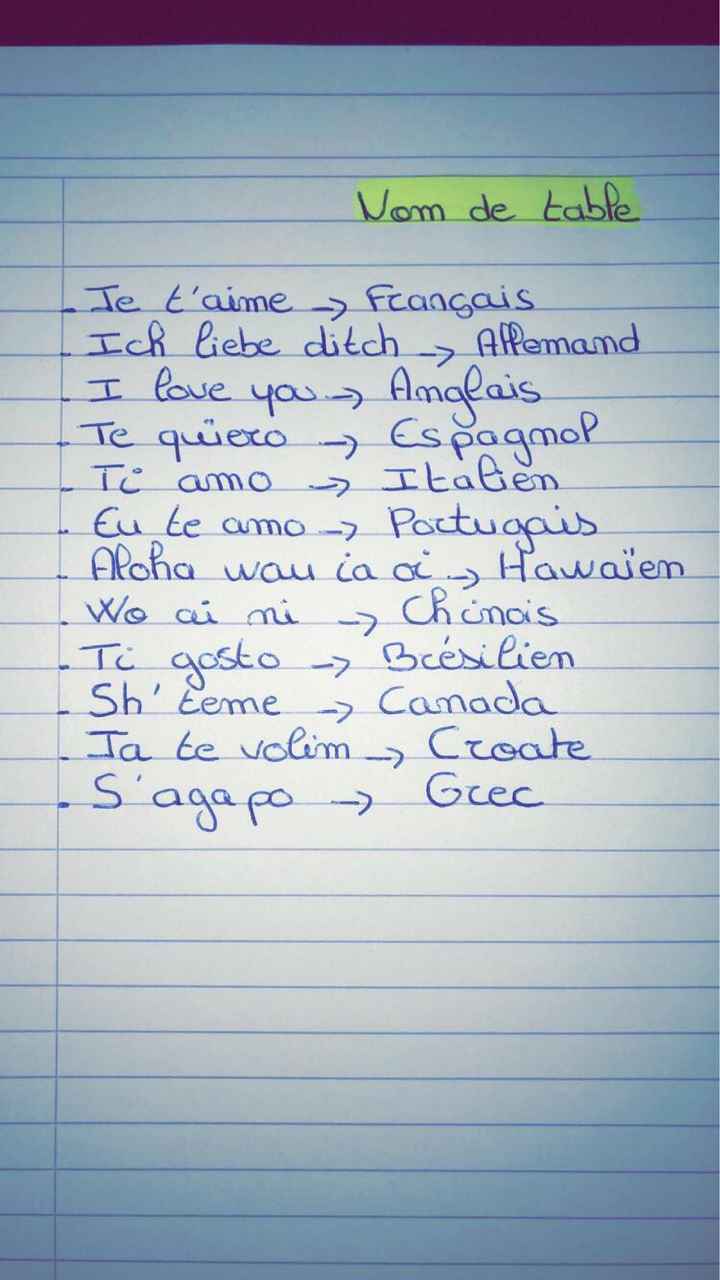 Nom de table
- Je t'aime → Français
- Ich liebe ditch → Allemand
- I love you → Anglais
- Te quiero → Espagnol
- Ti amo → Italien
- Eu te amo → Portugais
- Aloha wau ia oi → Hawaïen
- Wo ai ni → Chinois
- Ti gosto → Brésilien
- Sh'teme → Canada
- Ja te volim → Croate
- S'agapo → Grec